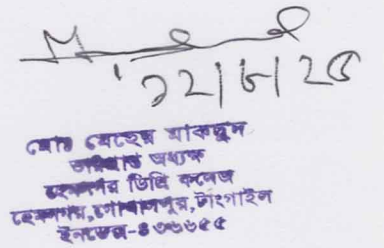 ১২/৮/২৫
মোঃ মেহের মাকছুদ
ভারপ্রাপ্ত অধ্যক্ষ
হেমনগর ডিগ্রি কলেজ
হেমনগর, গোপালপুর, টাংগাইল
ইনডেক্স-৪৩৬৬৫৫